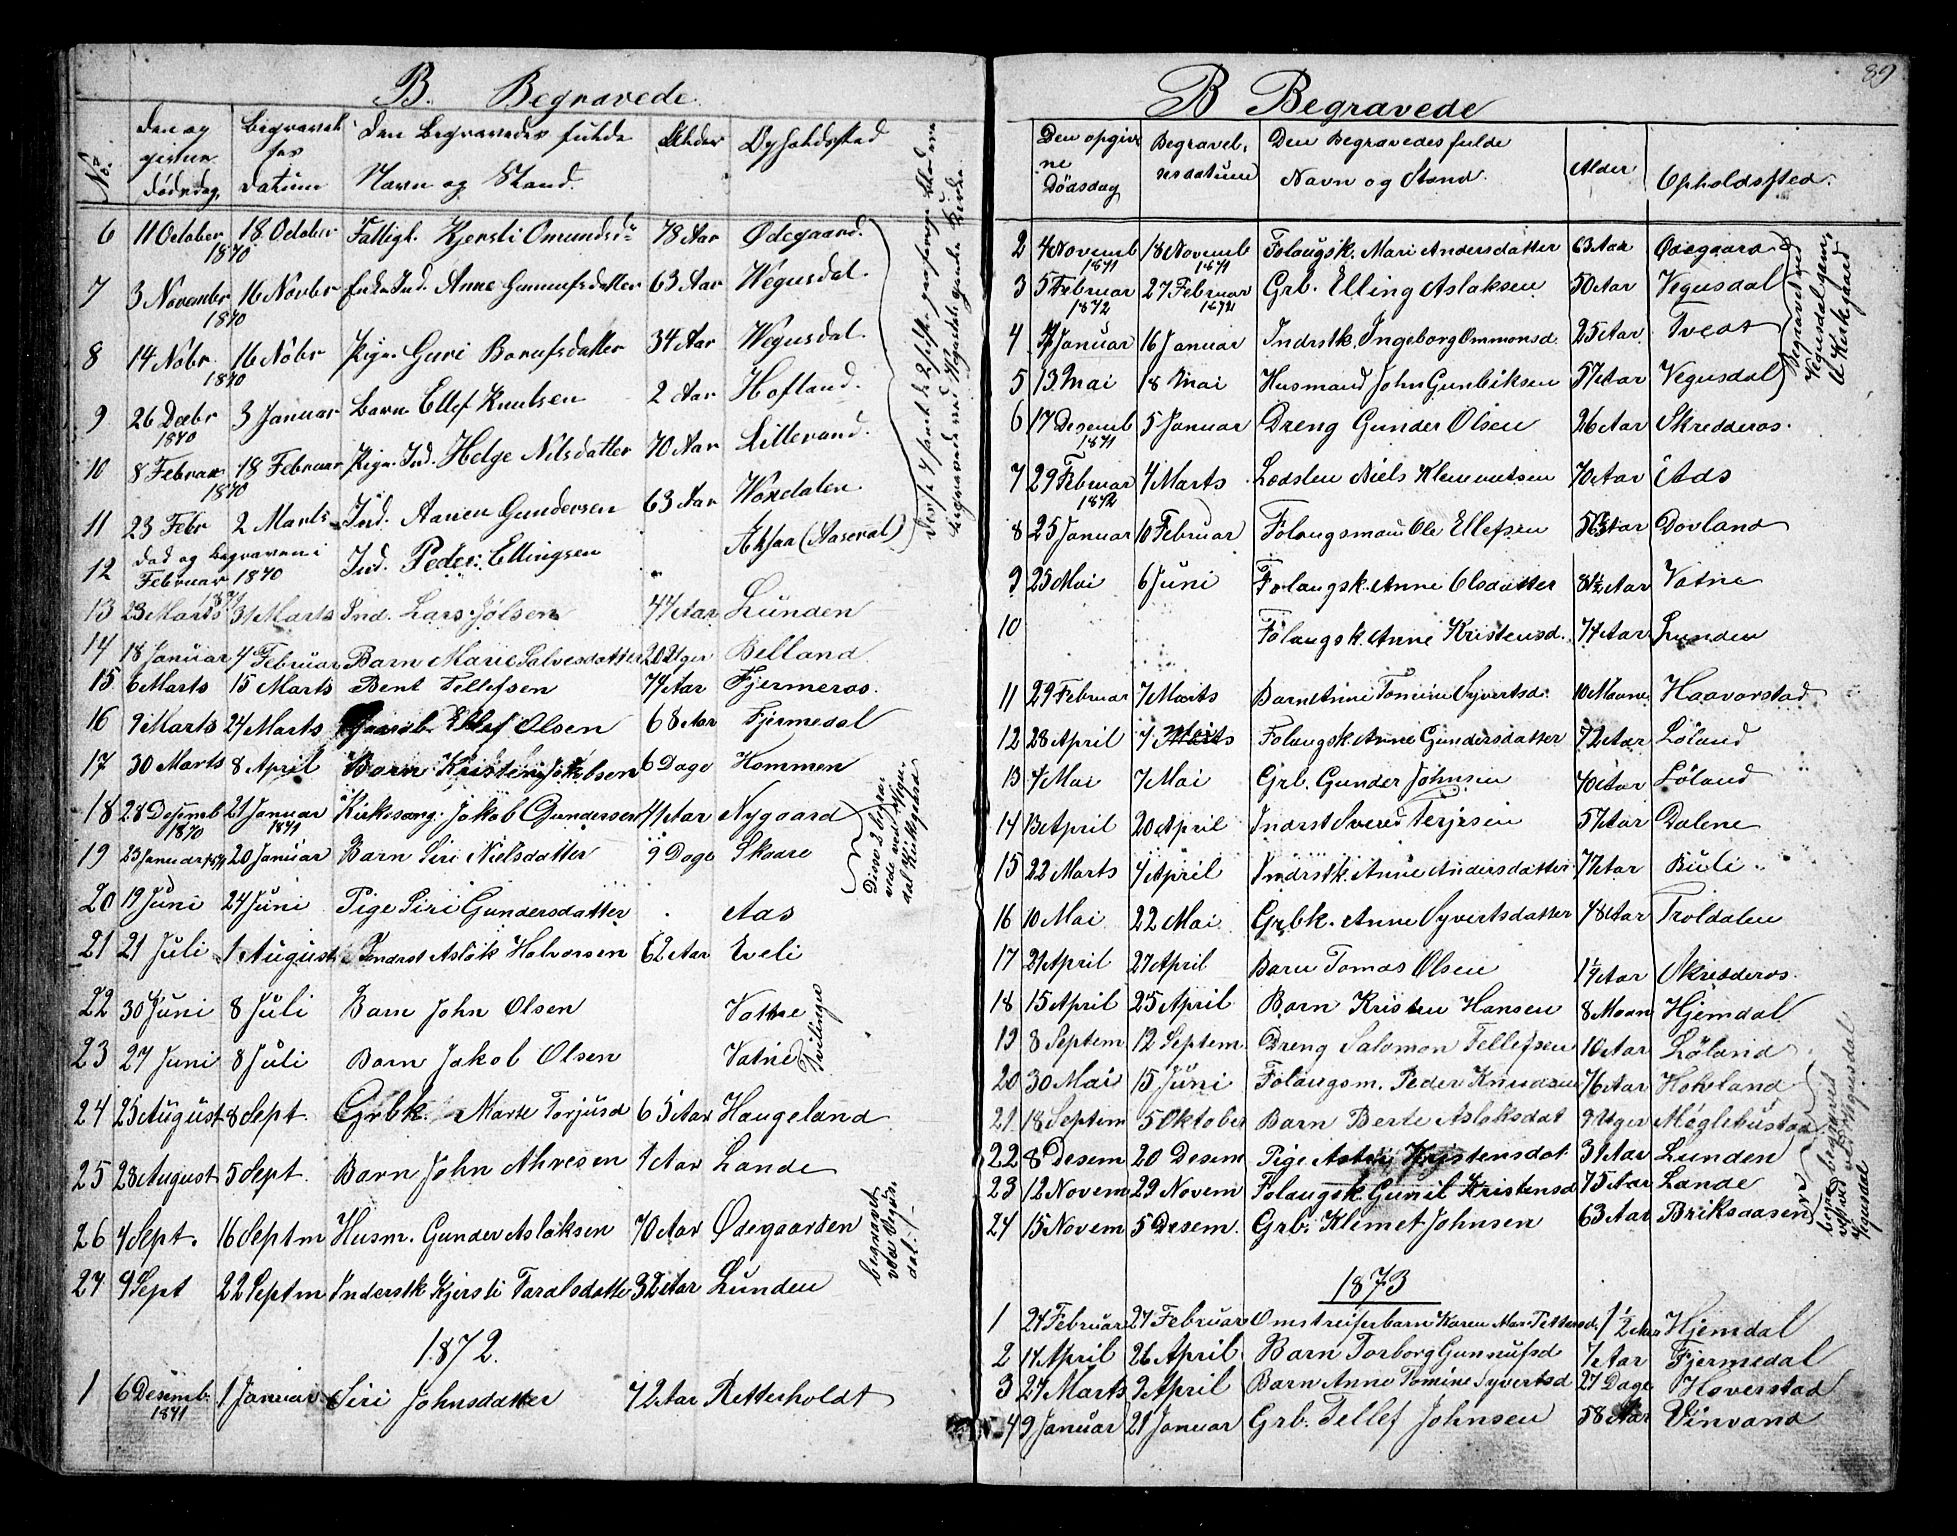 B. Begravede
No. den opgivne dødsdag Begravelses datum Den Begravedes fulde Navn og Stand. Alder Opholdssted
6 11 October 1870 18 October Fattigl. Kjersti Omundsd. 78 Aar Ødegaard.
7 3 November 1870 16 Novbr Anne Gunnufsdatter 63 Aar Wegusdal.
8 14 Nôbr. 1870 16 Nôbr Pige. Guri Borufsdatter 34 Aar Wegusdal.
9 26 Decbr 1870 3 Januar Barn Ellef Knutsen 2 Aar Hofland.
10 8 Februar 1870 18 Februar Pige. Ind. Helge Nilsdatter 70 Aar Lillevand.
11 23 Febr 2 Marts Ind. Aanen Gundersen 63 Aar Woxdalen.
12 død og begraven i Februar 1870 Ind. Peder Ellingsen " (Aaseral)
13 23 Marts 31 Marts Ind. Lars Jølsen 47 Aar Lunden
14 18 Januar 4 Februar Barn Marie Salvesdatter 20 Uger Belland
15 6 Marts 15 Marts Bent Tellefsen 74 Aar Fjermeros.
16 9 Marts 24 Marts Ellef Olsen 68 Aar Fjermedal
17 30 Marts 8 April Barn Kristen Jakobsen 6 Dage Hommen
18 28 Desemb 1870 21 Januar 1871 Kirkesang. Jakob Gundersen 41 Aar Nygaard
19 23 Januar 1871 20 Januar Barn Siri Nielsdatter 9 Dage Skaare
20 19 Juni 24 Juni Pige Siri Gundersdatter . Aas
21 21 Juli 1 August Indrst Aslak Halvorsen 62 Aar Eveli
22 30 Juni 8 Juli Barn John Olsen Vatne
23 27 Juni 8 Juli Barn Jakob Olsen Vatne
Tvilinger
24 25 August 8 Sept. Grbk. Marte Torjusd 65 Aar Haugeland
25 28 August 5 Sept. Barn John Ahresen 1 Aar Lande
26 4 Sept. 16 Septm Husm. Gunder Aslaksen 70 Aar Ødegaarden
27 9 Sept 22 Septm Inderstk Kjersti Taralsdatte 32 Aar Lunden
1872.
1 6 Desemb. 1871 1 Januar Siri Johnsdatter 72 Aar Retterholdt
Disse 3 begravede ved Vegusdal Kirkegaard
begravet ved Vegusdal.
89
B Begravede
Den opgivne Dödsdag Begravelsesdatum Den Begravedes fulde Navn og Stand. Alder Opholdssted.
2 4 Novemb 1871 18 Novemb 1871 Folaugsk. Mari Andersdatter 63 Aar Ødegaard
3 5 Februar 1872 27 Februar 1872 Grb. Elling Aslaksen 50 Aar Vegusdal
4 7 Januar 16 Januar Indrstk. Ingeborg Ommonsd. 25 Aar Tvedt
5 13 Mai 18 Mai Husmand John Gunbiksen 57 Aar Vegusdal
Begravet ved Vegusdal gamle Kirkgaard
6 17 Desemb 1871 5 Januar Dreng Gunder Olsen 26 Aar Skredderos.
7 29 Februar 1872 4 Marts Lodslen Niels Klemmetsen 70 Aar Aas
8 25 Januar 10 Februar Folaugsman Ole Ellefsen Aar Dovland
9 25 Mai 6 Juni Folaugsk. Anne Olsdatter 81½ Aar Vatne
10 Folaugsk. Anne Kristensd. 74 Aar Lunden
11 29 Februar 7 Marts Barn Anne Tomine Syvertsd. 10 Maane Haavorstad
12 28 April 7 Marts Folaugsk. Anne Gundersdatter 72 Aar Løland
13 4 Mai 7 Mai Grb. Gunder Johnsen 40 Aar Løland
14 13 April 20 April Indrst Sverd Terjesen 57 Aar Dalene
15 22 Marts 4 April Indrstk. Anne Andersdatter 77 Aar Buli
16 10 Mai 22 Mai Grbk. Anne Syvertsdatter 48 Aar Troldalen
17 21 April 27 April Barn Tomas Olsen Aar Skredderos.
18 15 April 25 April Barn Kristen Hansen 8 Maan Hjemdal
19 8 Septem 12 Septem. Dreng Salomon Tellefsen 10 Aar Løland
20 30 Mai 15 Juni Folaugsm. Peder Knudsen 76 Aar Hokeland
21 18 Septem 5 Oktober Barn Berte Aslaksdat 9 Uger Møglebustad
22 8 Desem 20 Desem Pige Kristensdat 31 Aar Lunden
23 12 Novem 29 Novem Folaugsk. Gunil Kristensd 75 Aar Lande
24 15 Novem 5 Desem. Grb. Klemet Johnsen 63 Aar Briksaasen
1873
1 24 Februar 27 Februar Omstreiferbarn Karen Mar. Pettersd. 1½ Aar Hjemdal
2 14 April 26 April Barn Torborg Gunnufsd Aar Fjermedal
3 27 Marts 2 April Barn Anne Tomine Syvertsd 27 Dage Hoverstad
4 9 Januar 21 Januar Grb. Tellef Johnsen 58 Aar Vinvand